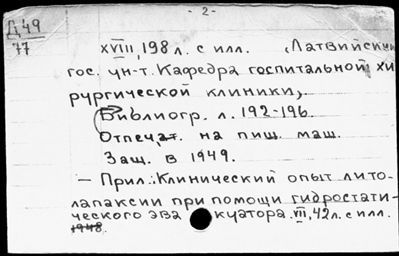 - 2 -
Д49
77
XVIII, 198 л. с илл. (Латвийский
гос. ун-т. Кафедра госпитальной хи
рургической клиники,
(Библиогр. л. 192-196.
Отпечат. на пиш. маш.
Защ. в 1949.
- Прил.: Клинический опыт лито-
лапаксии при помощи гидростати-
ческого эва куатора. VII, 42 л. с илл.
1948.